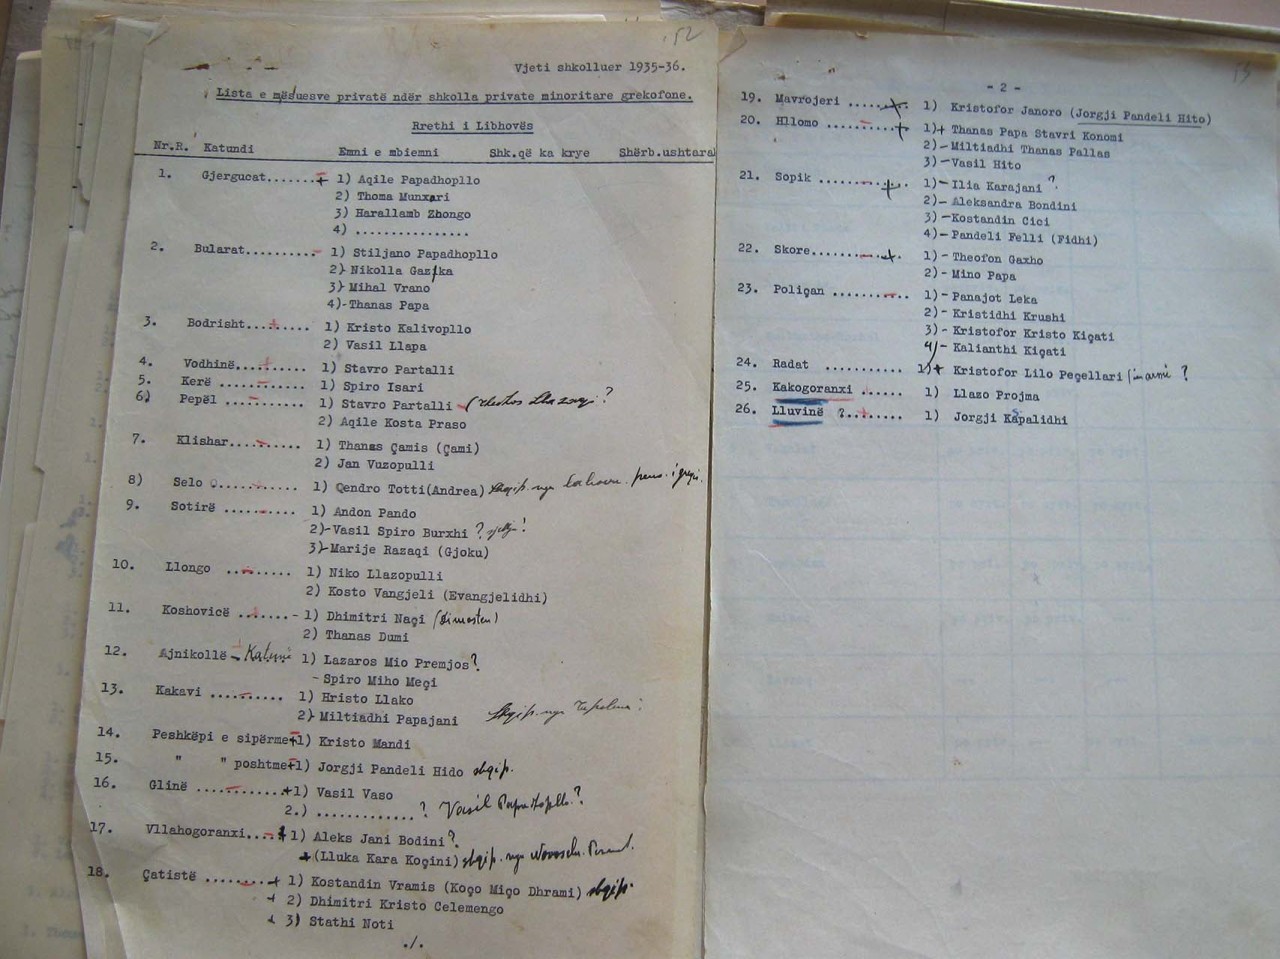 152
Vjeti shkolluer 1935-36.
Lista e mësuesve privatë ndër shkolla private minoritare grekofone.
Rrethi i Libhovës
Nr.R. Katundi Emni e mbiemni Shk.që ka krye Shërb.ushtarak
1. Gjergucat.......+ 1) Aqile Papadhopllo
2) Thoma Munxari
3) Harallamb Zhongo
4) ...............
2. Bularat.......... 1) Stiljano Papadhopllo
2)- Nikolla Gazika
3)- Mihal Vrano
4)-Thanas Papa
3. Bodrisht......... 1) Kristo Kalivopllo
2) Vasil Llapa
4. Vodhinë.......... 1) Stavro Partalli
5. Kerë .......... 1) Spiro Isari
6) Pepël .......... 1) Stavro Partalli ?
2) Aqile Kosta Praso
7. Klishar.......... 1) Thanas Çamis (Çami)
2) Jan Vuzopulli
8) Selo ........... 1) Qendro Totti(Andrea) shqip. nga
9. Sotirë .......... 1) Andon Pando
2)-Vasil Spiro Burxhi ? !
3)-Marije Razaqi (Gjoku)
10. Llongo ....... 1) Niko Llazopulli
2) Kosto Vangjeli (Evangjelidhi)
11. Koshovicë .......- 1) Dhimitri Naçi (Dimosten)
2) Thanas Dumi
12. Ajnikollë - Katuni 1) Lazaros Mio Premjos?
- Spiro Miho Meçi
13. Kakavi .......... 1) Hristo Llako
2)- Miltiadhi Papajani Shqip. nga Tepelena
14. Peshkëpi e sipërme+1) Kristo Mandi
15. " " poshtme+1) Jorgji Pandeli Hido shqip.
16. Glinë ...........+1) Vasil Vaso
2.) .............? Vasil ?
17. Vllahogoranxi....+ 1) Aleks Jani Bodini?
+(Lluka Kara Koçini) shqip. nga
18. Çatistë ........+ 1) Kostandin Vramis (Koço Miço Dhrami) shqip.
+ 2) Dhimitri Kristo Celemengo
+ 3) Stathi Noti
./.
- 2 -
19. Mavrojeri ....... 1) Kristofor Janoro (Jorgji Pandeli Hito)
20. Hllomo ..........+ 1)+ Thanas Papa Stavri Konomi
2)-Miltiadhi Thanas Pallas
3)-Vasil Hito
21. Sopik ........... 1)- Ilia Karajani ?
2)- Aleksandra Bondini
3)-Kostandin Cici
4)-Pandeli Felli (Fidhi)
22. Skore............ 1)-Theofon Gaxho
2)- Mino Papa
23. Poliçan .......... 1)- Panajot Leka
2)- Kristidhi Krushi
3)- Kristofor Kristo Kiçati
4)- Kalianthi Kiçati
24. Radat ........... 1)+ Kristofor Lilo Peçellari ?
25. Kakogoranxi ...... 1) Llazo Projma
26. Lluvinë ?........ 1) Jorgji Kapalidhi